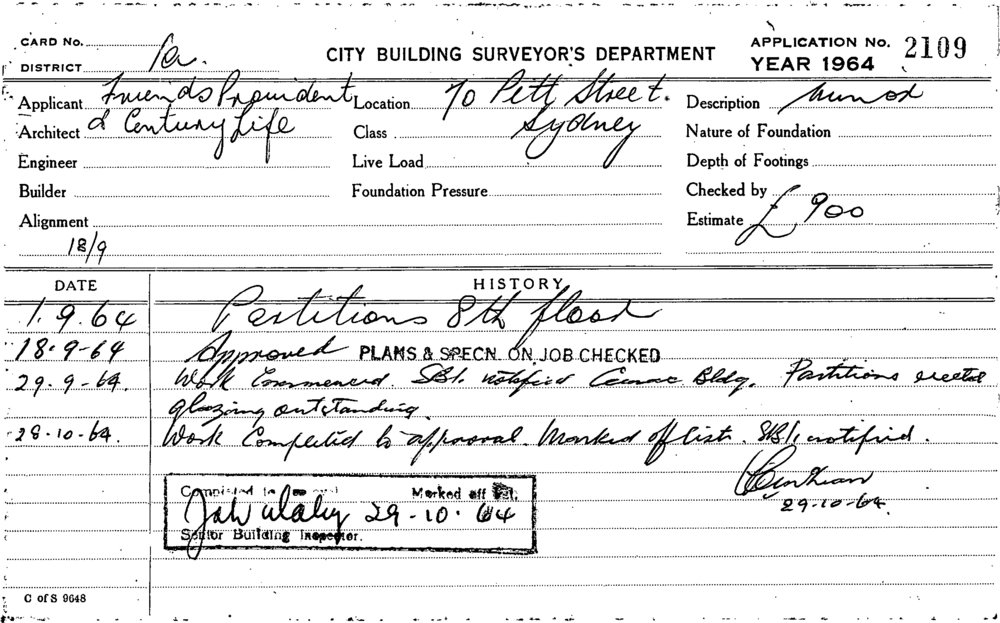 CARD No.
DISTRICT
CITY BUILDING SURVEYOR'S DEPARTMENT
APPLICATION No. 2109
YEAR 1964
Applicant Friends Provident Location 70 Pitt Street. Description minor
Architect & Century Life Class Sydney Nature of Foundation
Engineer Live Load Depth of Footings
Builder Foundation Pressure Checked by
Alignment Estimate £900
18/9
DATE HISTORY
1.9.64 Partitions 8th floor
18.9-64 Approved PLANS & SPECN. ON JOB CHECKED
29.9-64. Work Commenced. SBI. notified Bldg. Partitions erected
glazing outstanding.
28.10-64. Work Completed to approval. Marked off list. SBI. notified.
29-10-64.
Completed to Marked off
29-10.64
Senior Building Inspector.
C of S 9648